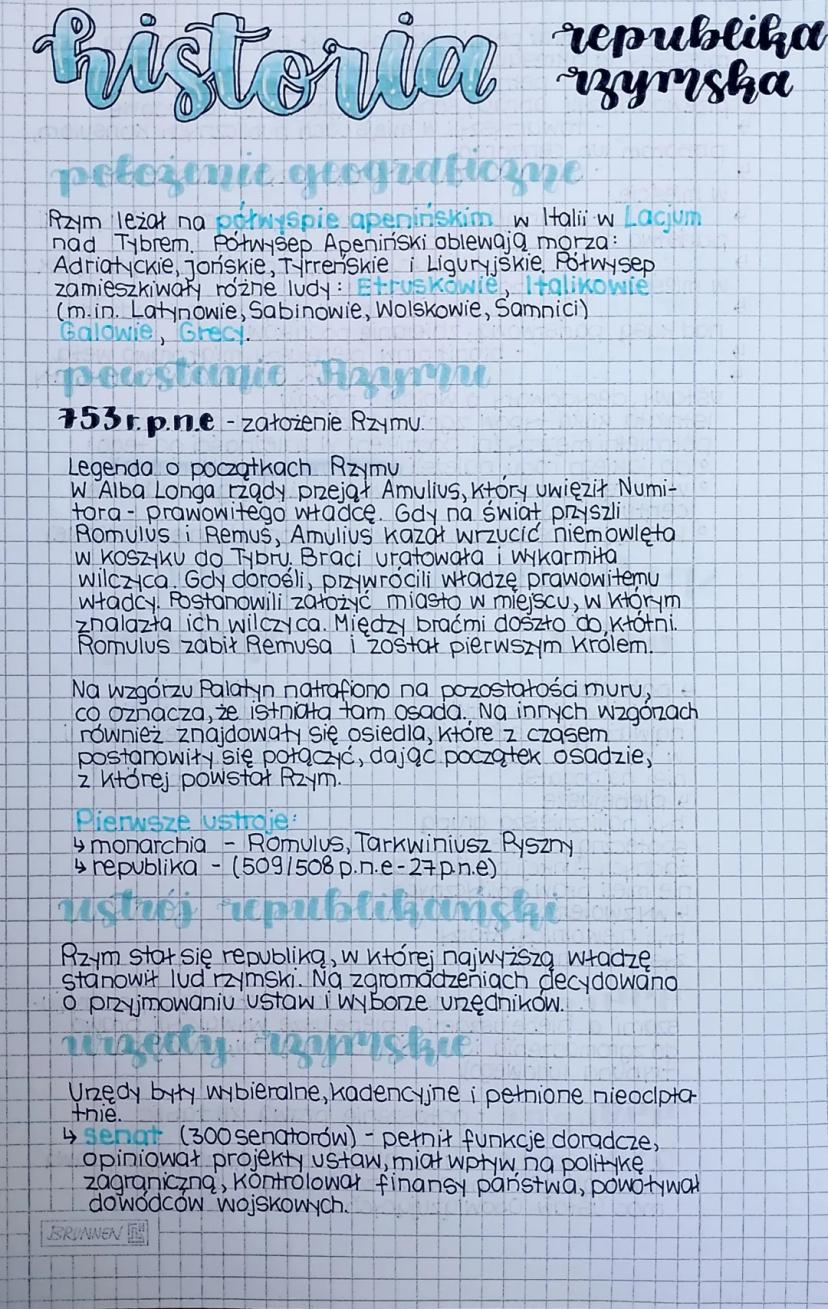 historia
republika
rzymska
położenie geograficzne
Rzym leżał na półwyspie apenińskim w Italii w Lacjum
nad Tybrem. Półwysep Apeniński oblewają morza:
Adriatyckie, Jońskie, Tyrreńskie i Liguryjskie. Półwysep
zamieszkiwały różne ludy: Etruskowie, Italikowie
(m.in. Latynowie, Sabinowie, Wolskowie, Samnici)
Galowie, Grecy.
powstanie Rzymu
753 r. p.n.e - założenie Rzymu.
Legenda o początkach Rzymu
W Alba Longa rządy przejął Amulius, który uwięził Numi-
tora - prawowitego władcę. Gdy na świat przyszli
Romulus i Remus, Amulius kazał wrzucić niemowlęta
w koszyku do Tybru. Braci uratowała i wykarmiła
wilczyca. Gdy dorośli, przywrócili władzę prawowitemu
władcy. Postanowili założyć miasto w miejscu, w którym
znalazła ich wilczyca. Między braćmi doszło do kłótni.
Romulus zabił Remusa i został pierwszym królem.
Na wzgórzu Palatyn natrafiono na pozostałości muru,
co oznacza, że istniała tam osada. Na innych wzgórzach
również znajdowały się osiedla, które z czasem
postanowiły się połączyć, dając początek osadzie,
z której powstał Rzym.
Pierwsze ustroje:
↳ monarchia - Romulus, Tarkwiniusz Pyszny
↳ republika - (509/508 p.n.e - 27 p.n.e)
ustrój republikański
Rzym stał się republiką, w której najwyższą władzę
stanowił lud rzymski. Na zgromadzeniach decydowano
o przyjmowaniu ustaw i wyborze urzędników.
urzędy rzymskie
Urzędy były wybieralne, kadencyjne i pełnione nieodpła-
tnie.
↳ senat (300 senatorów) - pełnił funkcje doradcze,
opiniował projekty ustaw, miał wpływ na politykę
zagraniczną, kontrolował finansy państwa, powoływał
dowódców wojskowych.
BRUNNEN